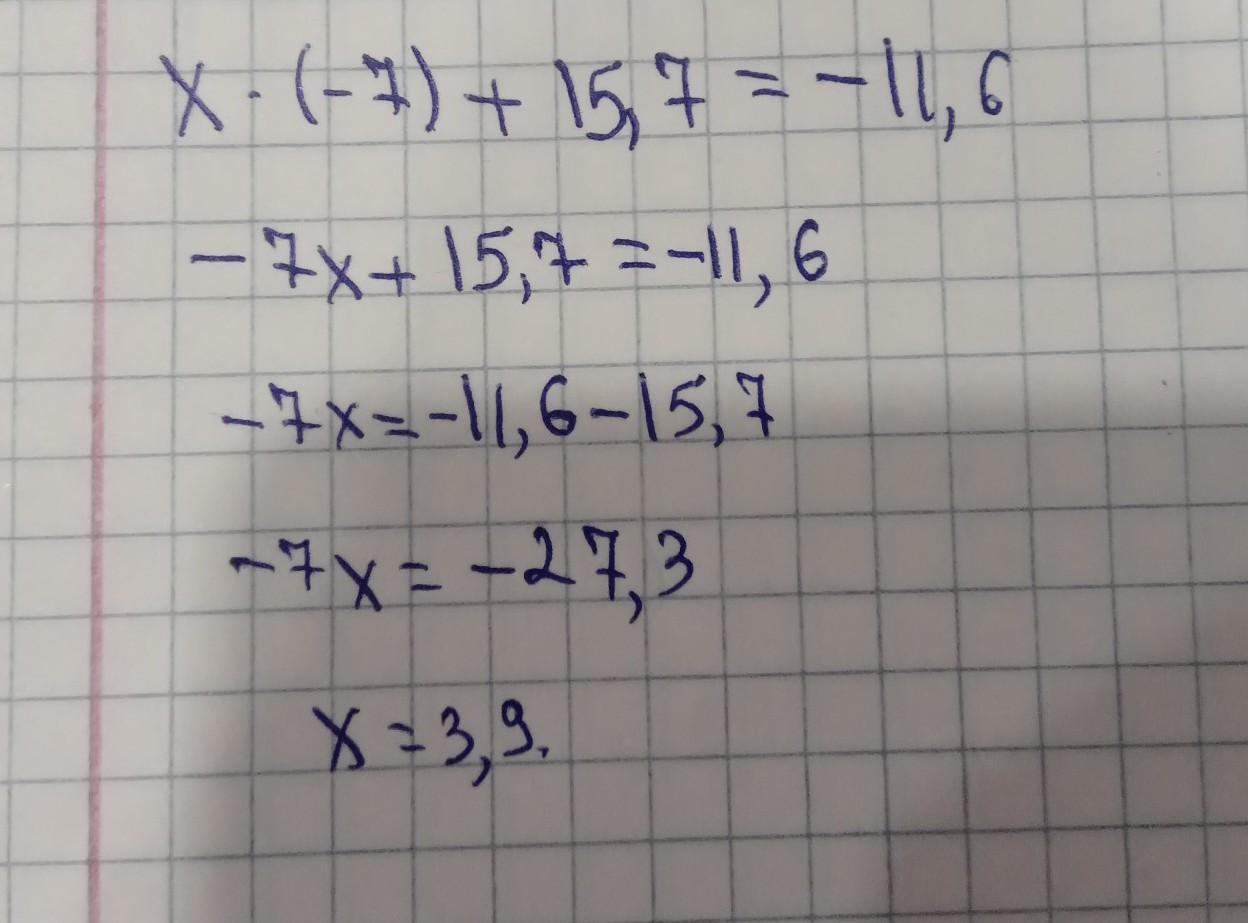 x · (-7) + 15,7 = -11,6
-7x + 15,7 = -11,6
-7x = -11,6 - 15,7
-7x = -27,3
x = 3,9.